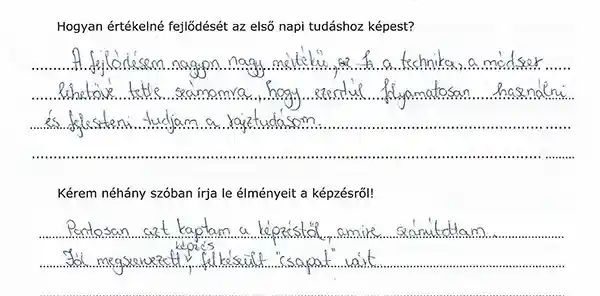 Hogyan értékelné fejlődését az első napi tudáshoz képest?
A fejlődésem nagyon nagy mértékű, az a technika, a módszer
lehetővé tette számomra, hogy ezentúl folyamatosan használni
és fejleszteni tudjam a rajztudásom.
Kérem néhány szóban írja le élményeit a képzésről!
Pontosan azt kaptam a képzéstől, amire számítottam.
képzés
Jól megszervezett, felkészült "csapat" várt.